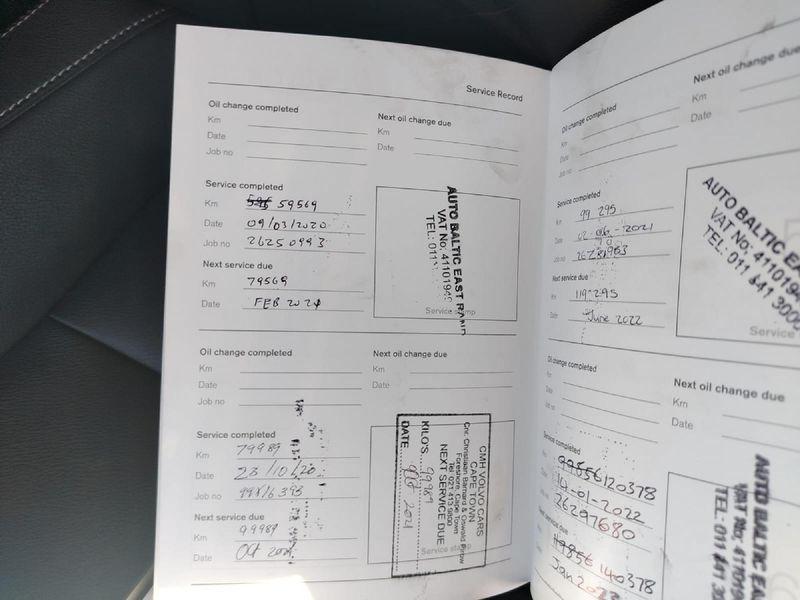 Service Record
Oil change completed
Km
Date
Job no
Next oil change due
Km
Date
Service completed
Km 59569
Date 09/03/2020
Job no 26250993
Next service due
Km 79569
Date FEB 2021
AUTO BALTIC EAST RAND
VAT No: 41101949
TEL: 011
Service stamp
Oil change completed
Km
Date
Job no
Next oil change due
Km
Date
Service completed
Km 79989
Date 23/10/20
Job no
Next service due
Km 99989
Date Oct 2021
CMH VOLVO CARS
CAPE TOWN
Cnr. Christiaan Barnard & Oswald Pirow
Foreshore, Cape Town
Tel 021 413 9800
NEXT SERVICE DUE
KILO'S 99989
DATE Oct 2021
Service stamp
Next oil change due
Km
Date
Oil change completed
Km
Date
Job no
Service completed
Km 99 295
Date
Job no
Next service due
Km 119 295
Date June 2022
AUTO BALTIC EAST
VAT No: 4110194
TEL: 011 641 3000
Service
Oil change completed
Km
Date
Job no
Next oil change due
Km
Date
Service completed
120378
14-01-2022
26297680
service due
140378
Jan
AUTO BALTIC
VAT No: 41101
TEL: 011 641 3